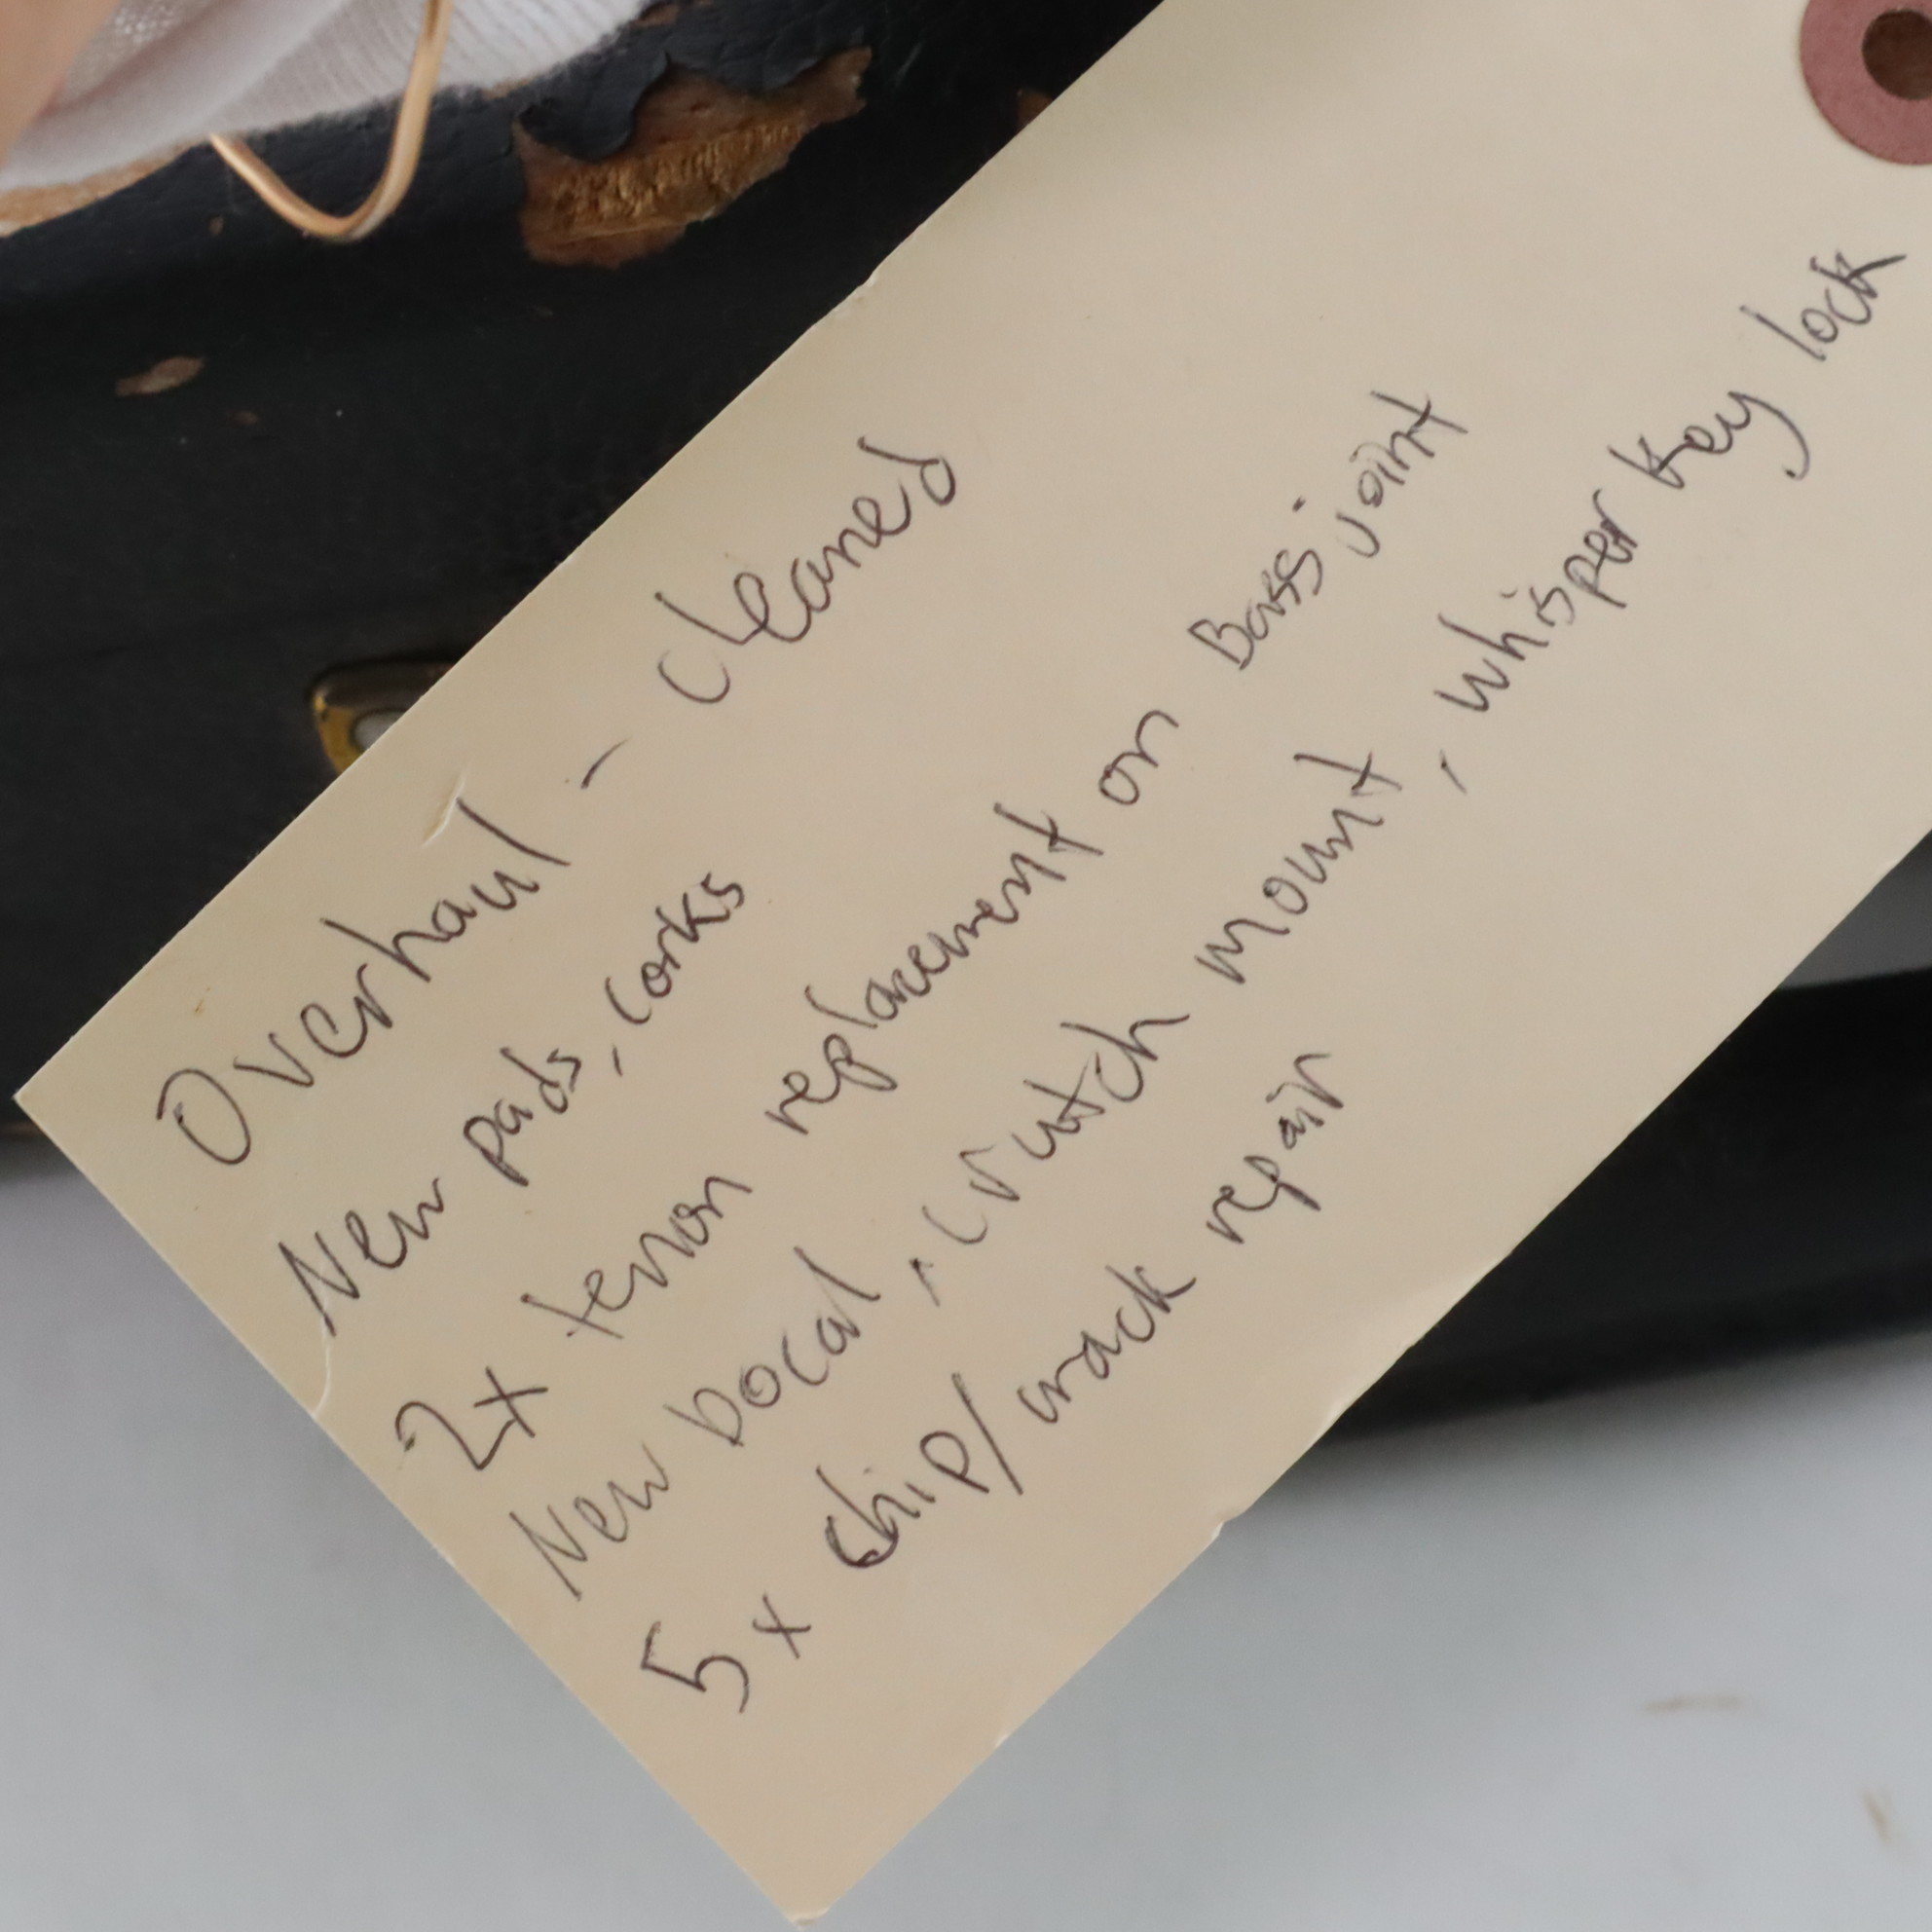 Overhaul - cleaned
New pads, corks
2x tenon replacement on Bass joint
New bocal, crutch mount, whisper key lock
5x chip/crack repair